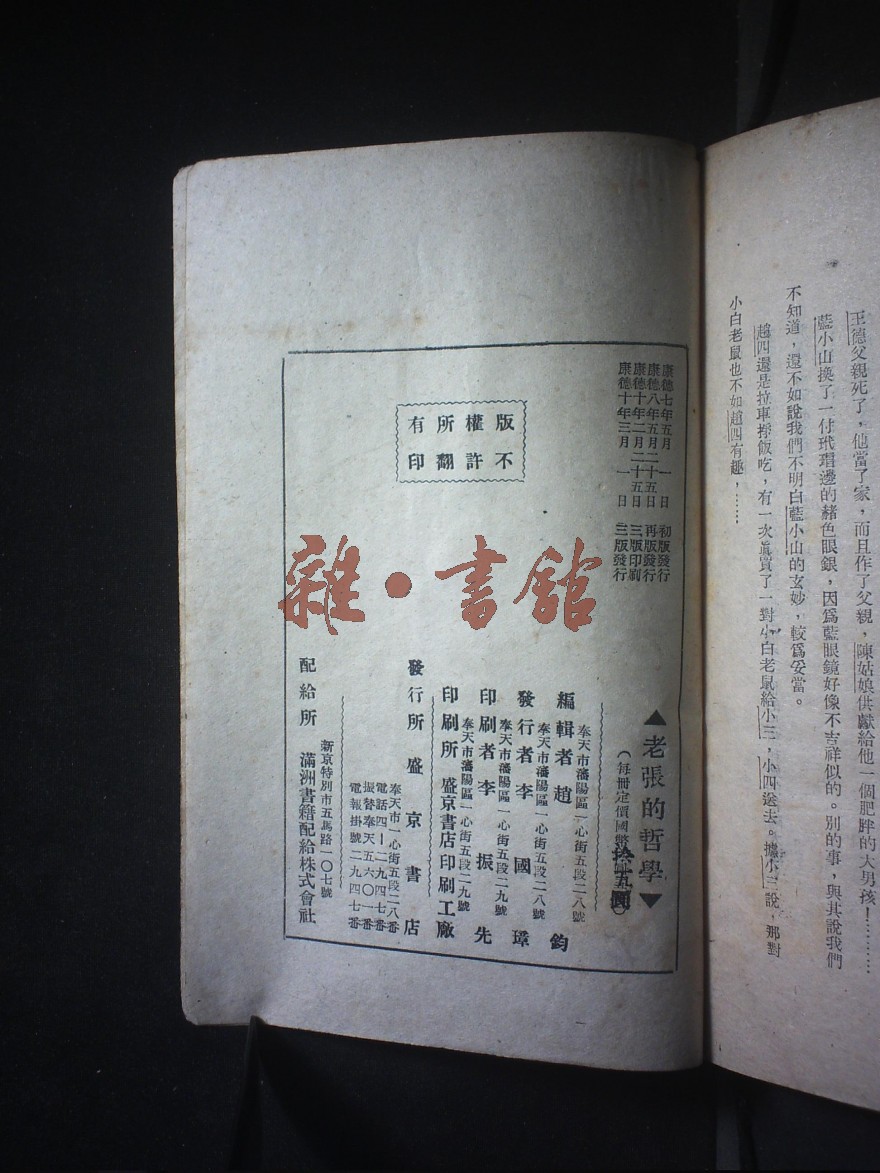 王德父親死了，他當了家，而且作了父親，陳姑娘供獻給他一個肥胖的大男孩！…………
藍小山換了一付玳瑁邊的赭色眼鏡，因爲藍眼鏡好像不吉祥似的。別的事，與其說我們
不知道，還不如說我們不明白藍小山的玄妙，較爲妥當。
趙四還是拉車掙飯吃，有一次眞買了一對小白老鼠給小三，小四送去。據小三說，那對
小白老鼠也不如趙四有趣，……
康德七年五月一日 初版發行
康德八年五月二十五日 再版發行
康德十年二月二十五日 三版印刷
康德十年三月一日 三版發行
版權所有
不許翻印
雜·書館
▲老張的哲學▼
(每冊定價國幣拾五圓)
奉天市瀋陽區一心街五段二八號
編輯者 趙鈞
奉天市瀋陽區一心街五段二八號
發行者 李國璋
奉天市瀋陽區一心街五段二九號
印刷者 李振先
奉天市瀋陽區一心街五段二九號
印刷所 盛京書店印刷工廠
發行所 盛京書店
奉天市一心街五段二八番
電話四—二九四七番
振替奉天五六〇一番
電報掛號二九四七番
新京特別市五馬路一〇七號
配給所 滿洲書籍配給株式會社